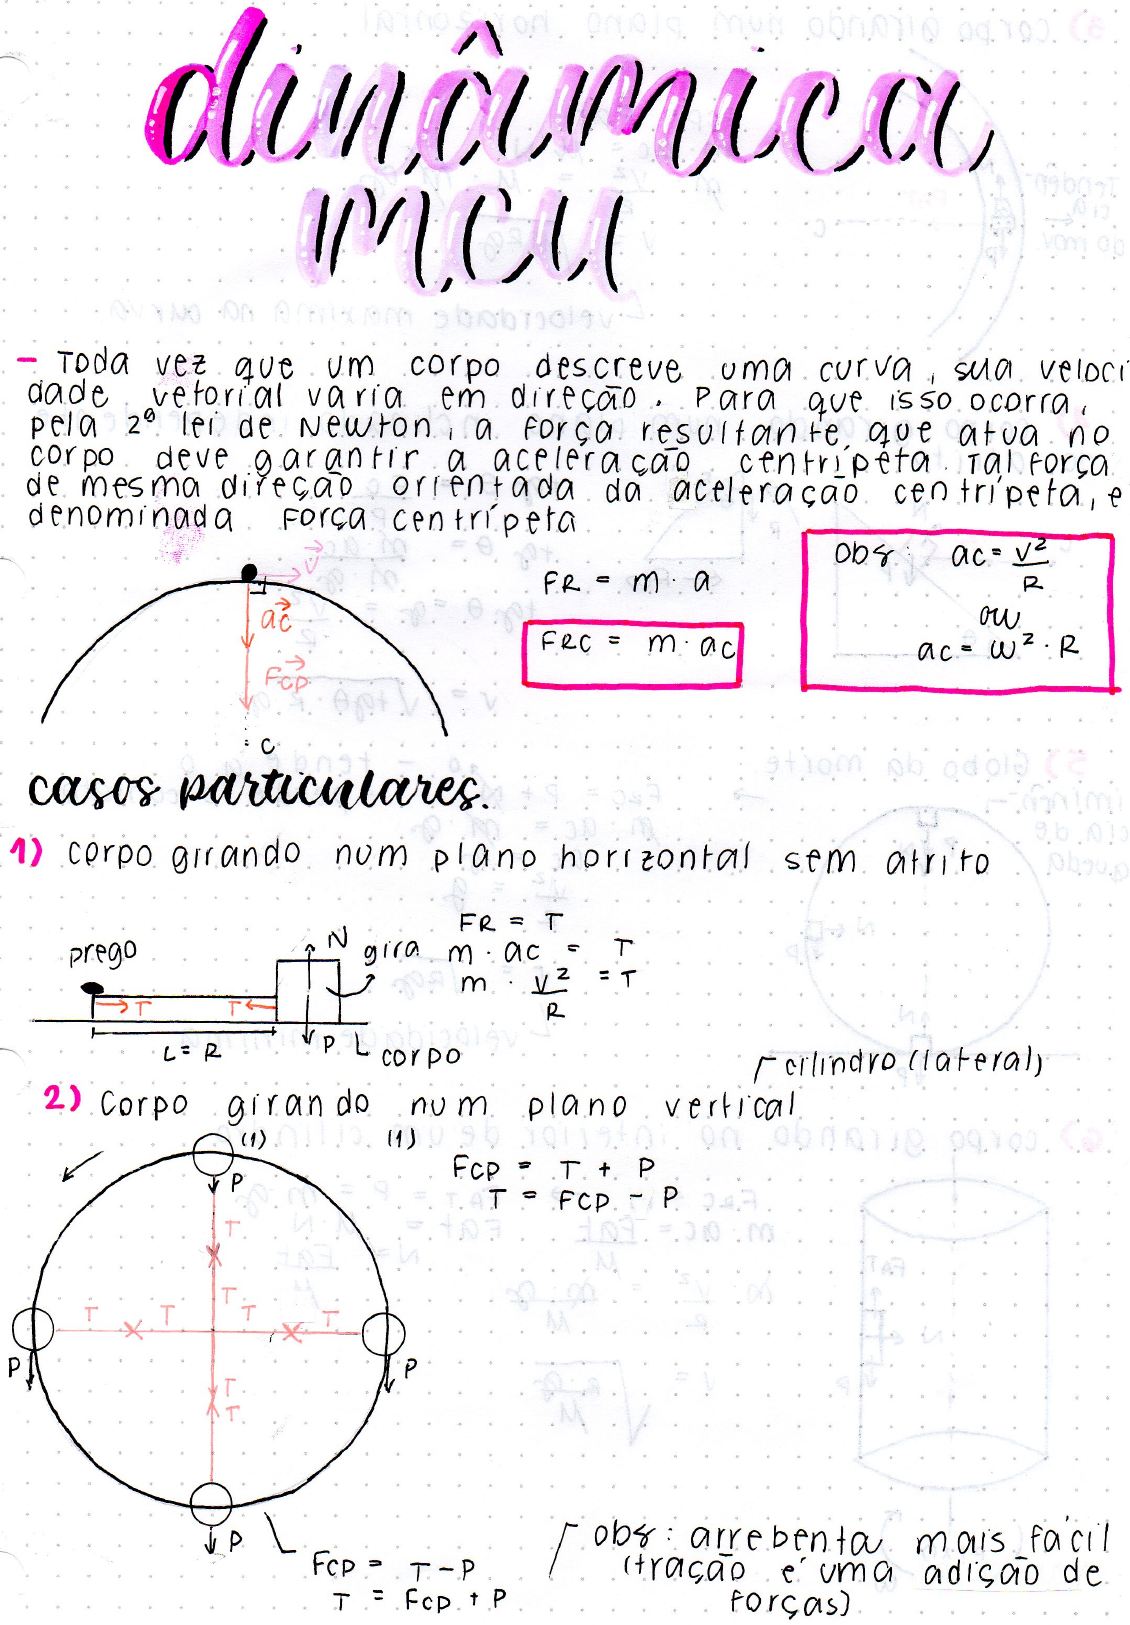 dinâmica
mcu
- Toda vez que um corpo descreve uma curva, sua veloci
dade vetorial varia em direção. Para que isso ocorra,
pela 2ª lei de Newton, a força resultante que atua no
corpo deve garantir a aceleração centrípeta. Tal força
de mesma direção orientada da aceleração centrípeta, e
denominada força centrípeta
v
ac
Fcp
C
FR = m · a
FRC = m · ac
Obs: ac = v²/R
ou
ac = ω² · R
casos particulares.
1) corpo girando num plano horizontal sem atrito
prego
T T
L = R
N
gira
P
corpo
FR = T
m · ac = T
m · v²/R = T
cilindro (lateral)
2) Corpo girando num plano vertical
(1) (1)
P
T
T
T T T T
T
T
P P
P
Fcp = T + P
T = Fcp - P
Fcp = T - P
T = Fcp + P
obs: arrebenta mais fácil
(tração é uma adição de
forças)